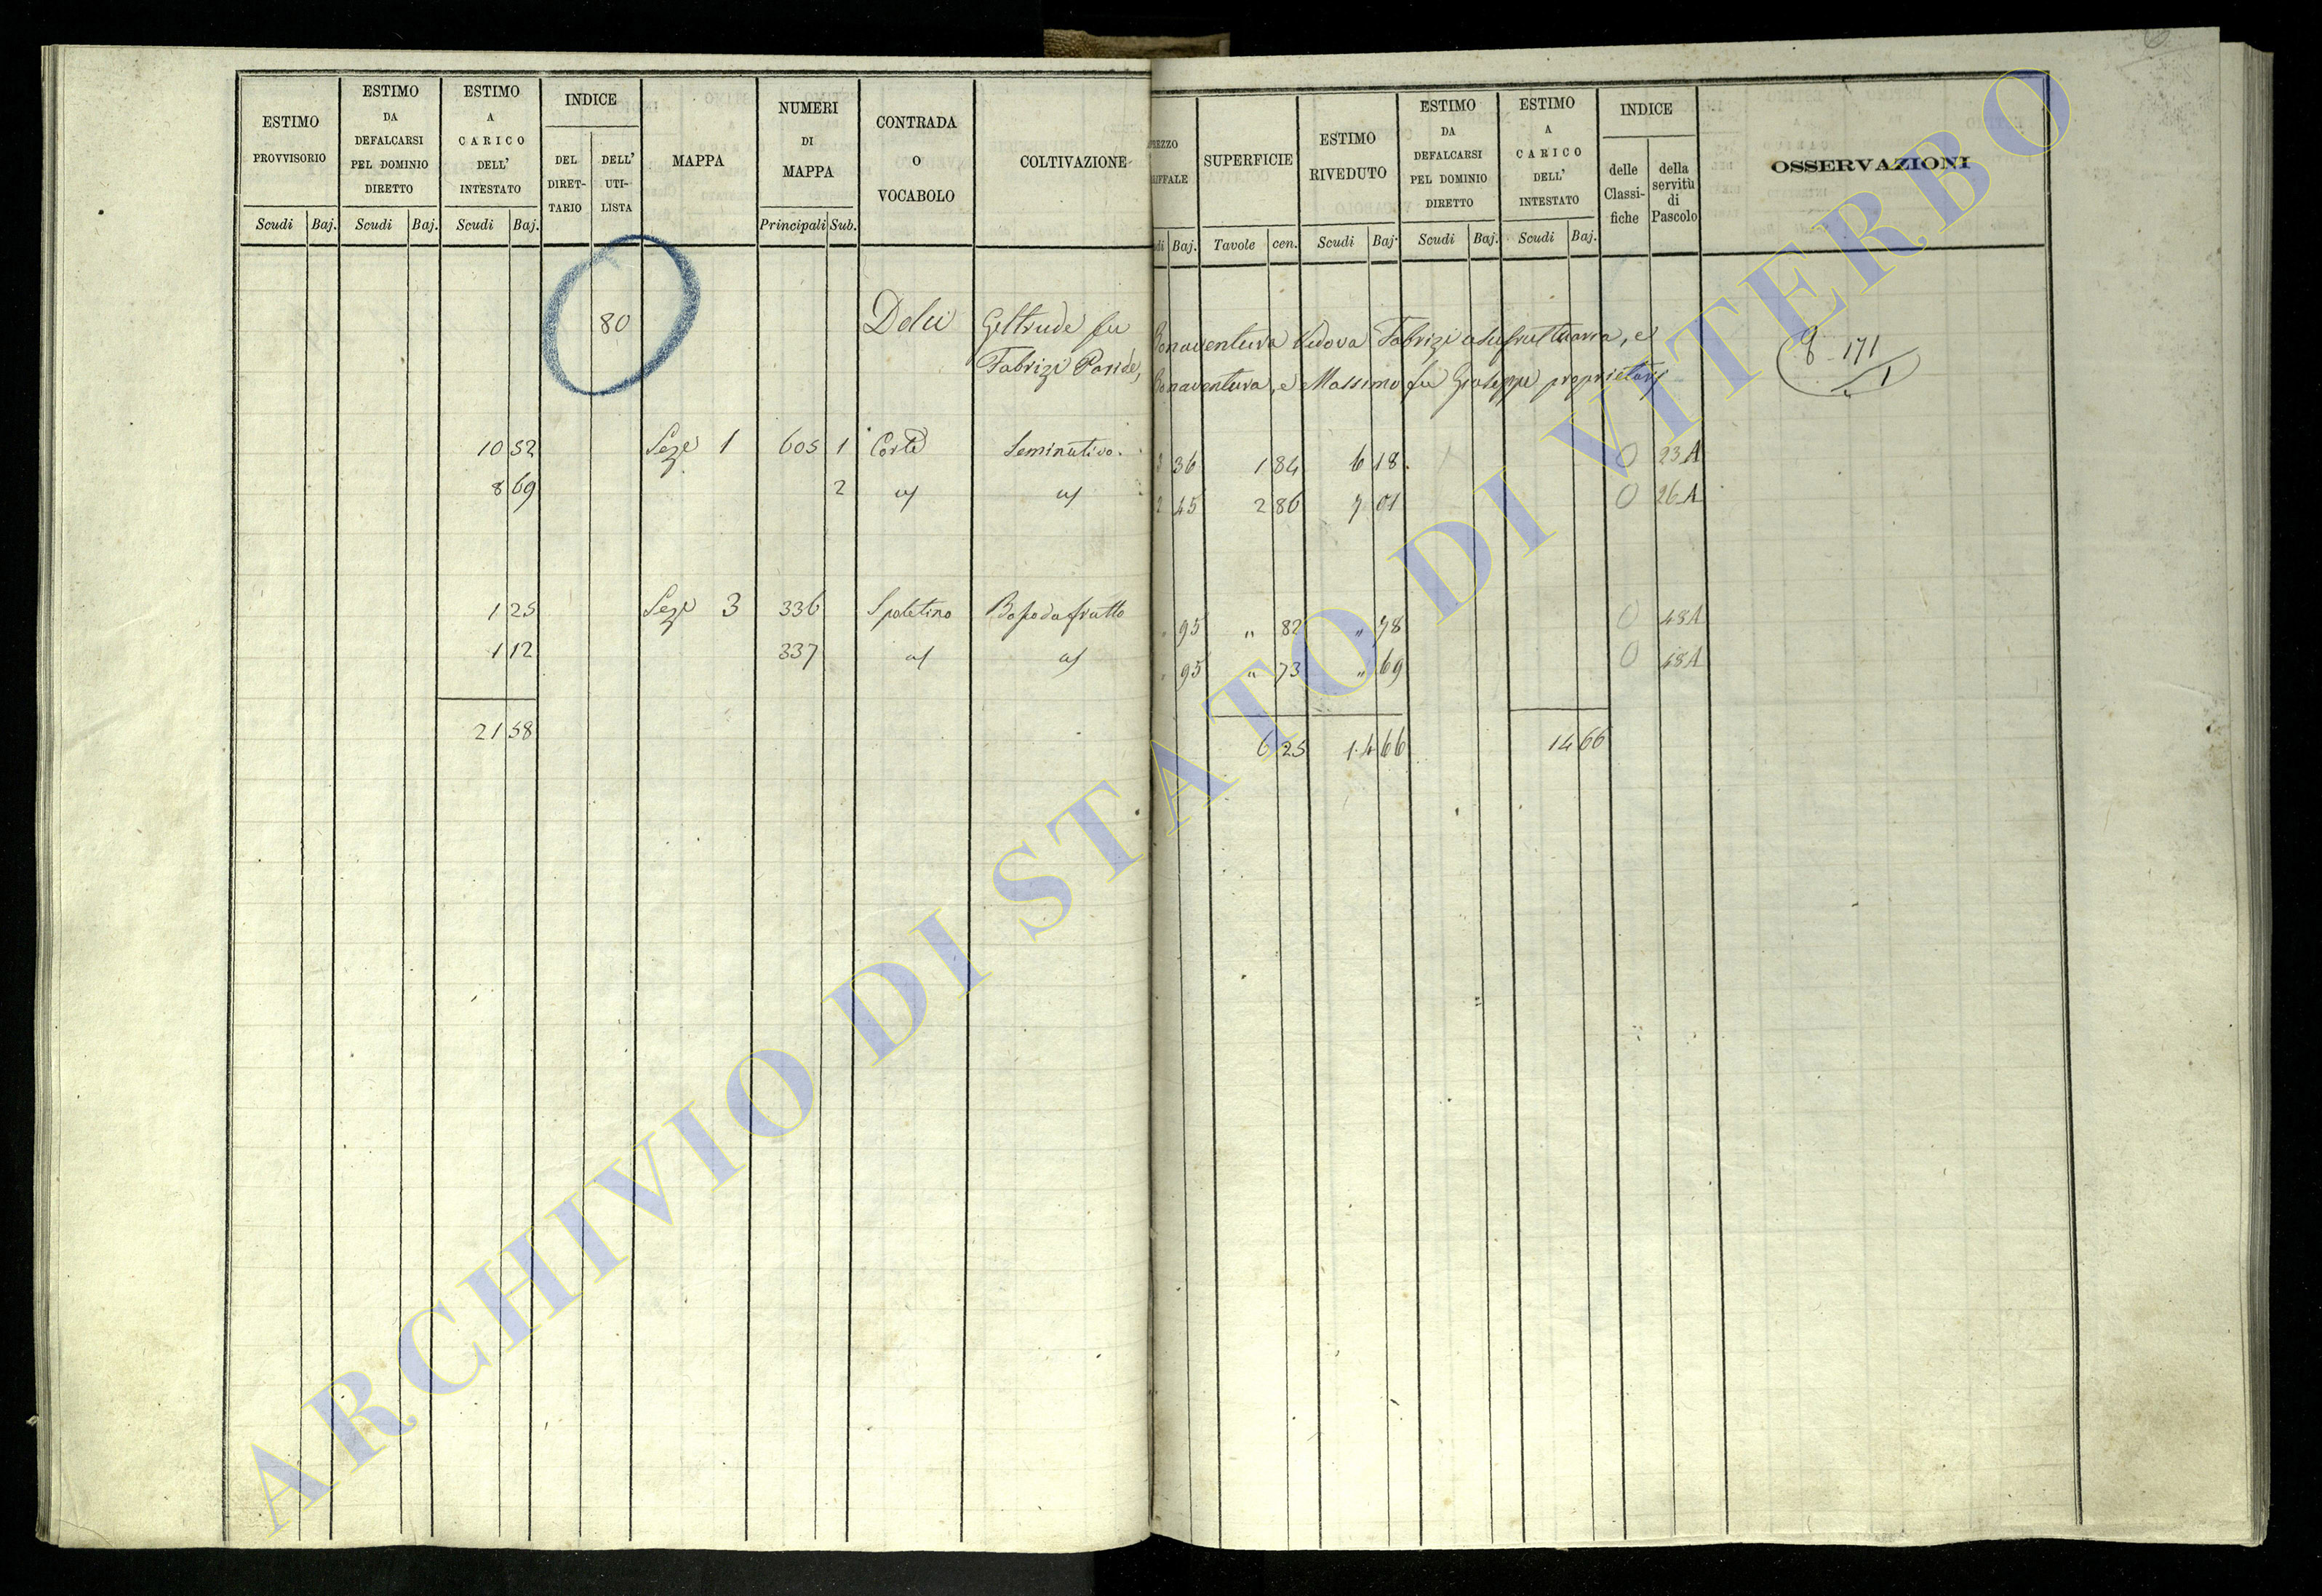 ESTIMO PROVVISORIO | ESTIMO DA DEFALCARSI PEL DOMINIO DIRETTO | ESTIMO A CARICO DELL' INTESTATO | INDICE | MAPPA | NUMERI DI MAPPA | CONTRADA O VOCABOLO | COLTIVAZIONE | SUPERFICIE | ESTIMO RIVEDUTO | ESTIMO DA DEFALCARSI PEL DOMINIO DIRETTO | ESTIMO A CARICO DELL' INTESTATO | INDICE | OSSERVAZIONI
DEL DIRET-TARIO | DELL' UTI-LISTA | delle Classi-fiche | della servitù di Pascolo
Scudi | Baj. | Scudi | Baj. | Scudi | Baj. | Principali | Sub. | Baj. | Tavole | cen. | Scudi | Baj. | Scudi | Baj. | Scudi | Baj.
80 | Geltrude fu Bonaventura Vedova Fabrizi usufruttuaria, e | 171
Fabrizi Paride, Bonaventura, e Massimo fu Giuseppe proprietarj | 1
10 52 | Seze 1 | 605 | 1 | Corte | Seminativo | 3 36 | 1 84 | 6 18 | 0 | 23 A
8 69 | 2 | 2 45 | 2 86 | 7 01 | 0 | 26 A
1 25 | Seze 3 | 336 | Spoletino | Boscodafrutto | " 95 | " 82 | " 78 | 0 | 48 A
1 12 | 337 | " 95 | " 73 | " 69 | 0 | 48 A
21 58 | 6 25 | 14 66 | 14 66
ARCHIVIO DI STATO DI VITERBO